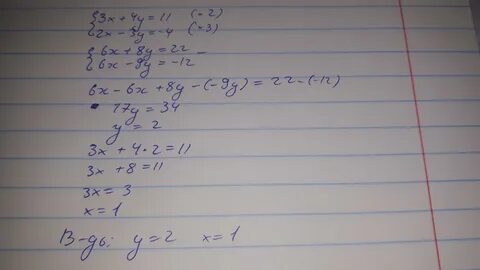 {3x + 4y = 11 (· 2)
{2x - 3y = -4 (· 3)
{6x + 8y = 22 -
{6x - 9y = -12
6x - 6x + 8y - (-9y) = 22 - (-12)
17y = 34
y = 2
3x + 4·2 = 11
3x + 8 = 11
3x = 3
x = 1
В-дь: y = 2 x = 1